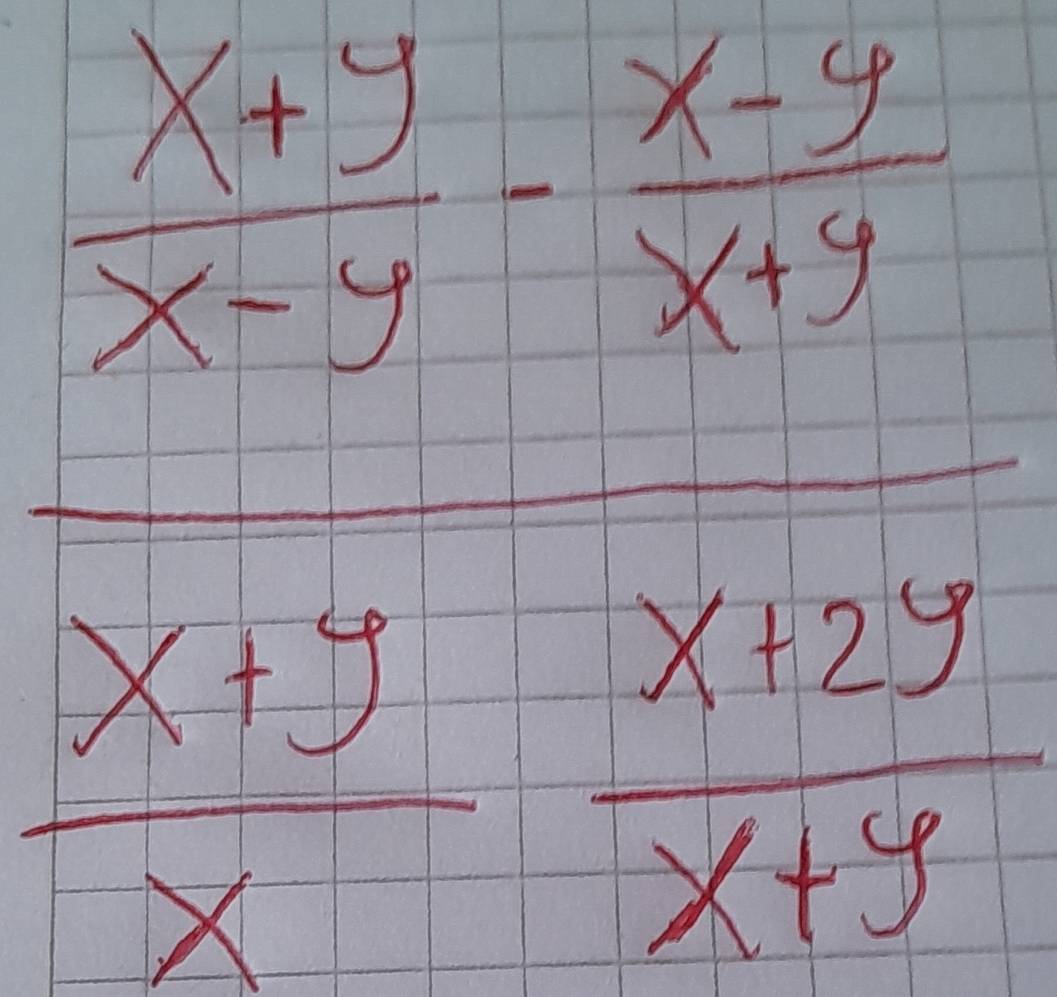 x + y   x - y
─── - ───
x - y   x + y
──────────
x + y   x + 2y
───   ───
x   x + y